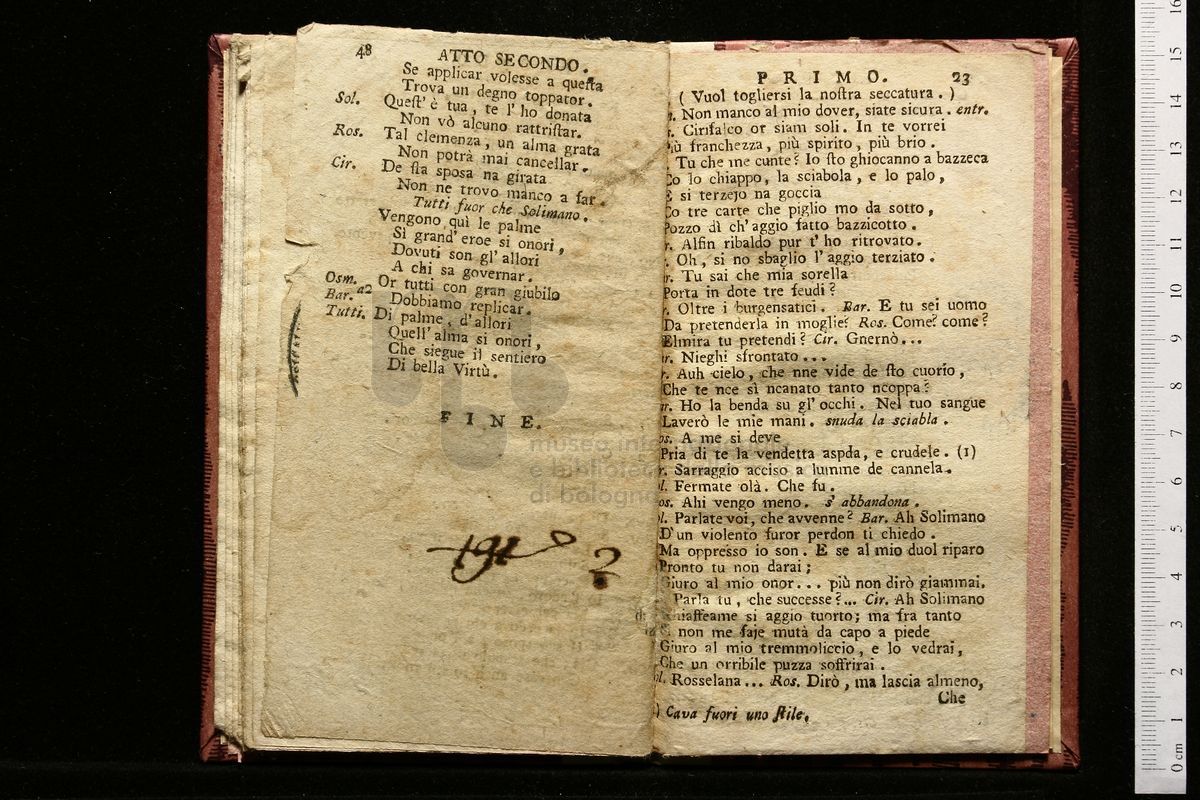 48
ATTO SECONDO.
Se applicar volesse a questa
Trova un degno toppator.
Sol. Quest' è tua, te l' ho donata
Non vò alcuno rattristar.
Ros. Tal clemenza, un alma grata
Non potrà mai cancellar.
Cir. De sta sposa na girata
Non ne trovo manco a far.
Tutti fuor che Solimano.
Vengono quì le palme
Sì grand' eroe si onori,
Dovuti son gl' allori
A chi sa governar.
Osm. Bar. a2 Or tutti con gran giubilo
Dobbiamo replicar.
Tutti. Di palme, d'allori
Quell' alma si onori,
Che siegue il sentiero
Di bella Virtù.
FINE.
191 2
PRIMO. 23
( Vuol togliersi la nostra seccatura. )
Non manco al mio dover, siate sicura. entr.
Cirifalco or siam soli. In te vorrei
più franchezza, più spirito, più brio.
Tu che me cunte? Io sto ghiocanno a bazzeca
Co lo chiappo, la sciabola, e lo palo,
E si terzejo na goccia
Co tre carte che piglio mo da sotto,
Pozzo dì ch' aggio fatto bazzicotto.
Alfin ribaldo pur t' ho ritrovato.
Oh, si no sbaglio l' aggio terziato.
Tu sai che mia sorella
Porta in dote tre feudi?
Oltre i burgensatici. Bar. E tu sei uomo
Da pretenderla in moglie? Ros. Come? come?
Elmira tu pretendi? Cir. Gnernò...
Nieghi sfrontato...
Auh cielo, che nne vide de sto cuorio,
Che te nce sì ncanato tanto ncoppa?
Ho la benda su gl' occhi. Nel tuo sangue
Laverò le mie mani. snuda la sciabla.
os. A me si deve
Pria di te la vendetta aspda, e crudele. (1)
Sarraggio acciso a lumme de cannela.
l. Fermate olà. Che fu.
os. Ahi vengo meno. s' abbandona.
l. Parlate voi, che avvenne? Bar. Ah Solimano
D' un violento furor perdon ti chiedo.
Ma oppresso io son. E se al mio duol riparo
Pronto tu non darai;
Giuro al mio onor... più non dirò giammai.
Parla tu, che successe?... Cir. Ah Solimano
si aggio tuorto; ma fra tanto
non me faje mutà da capo a piede
Giuro al mio tremmoliccio, e lo vedrai,
Che un orribile puzza soffrirai.
l. Rosselana... Ros. Dirò, ma lascia almeno,
Che
) Cava fuori uno stile.
museo
biblioteca
di bologna